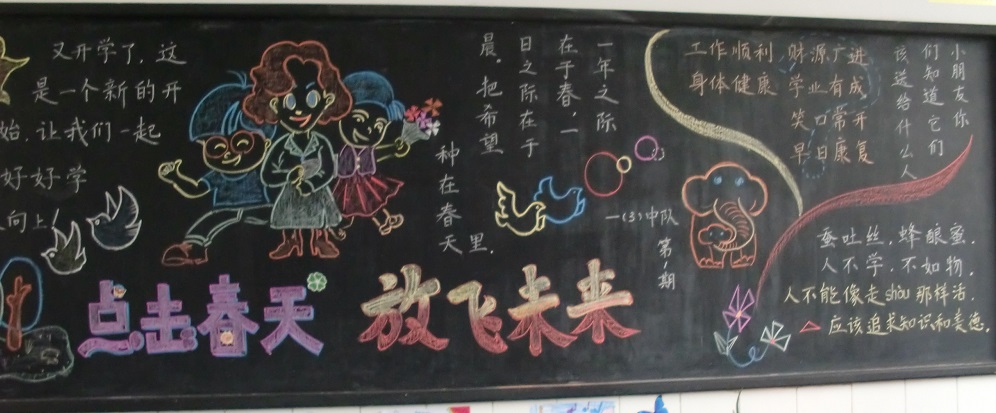 又开学了，这
是一个新的开
始，让我们一起
好好学
向上！
一年之际
在于春，一
日之际在于
晨。把希望
种在春天里。
一(3)中队
第 期
点击春天
放飞未来
工作顺利 财源广进
身体健康 学业有成
笑口常开
早日康复
小朋友你
们知道它们
该送给什么人
蚕吐丝，蜂酿蜜。
人不学，不如物。
人不能像走shòu那样活，
应该追求知识和美德。